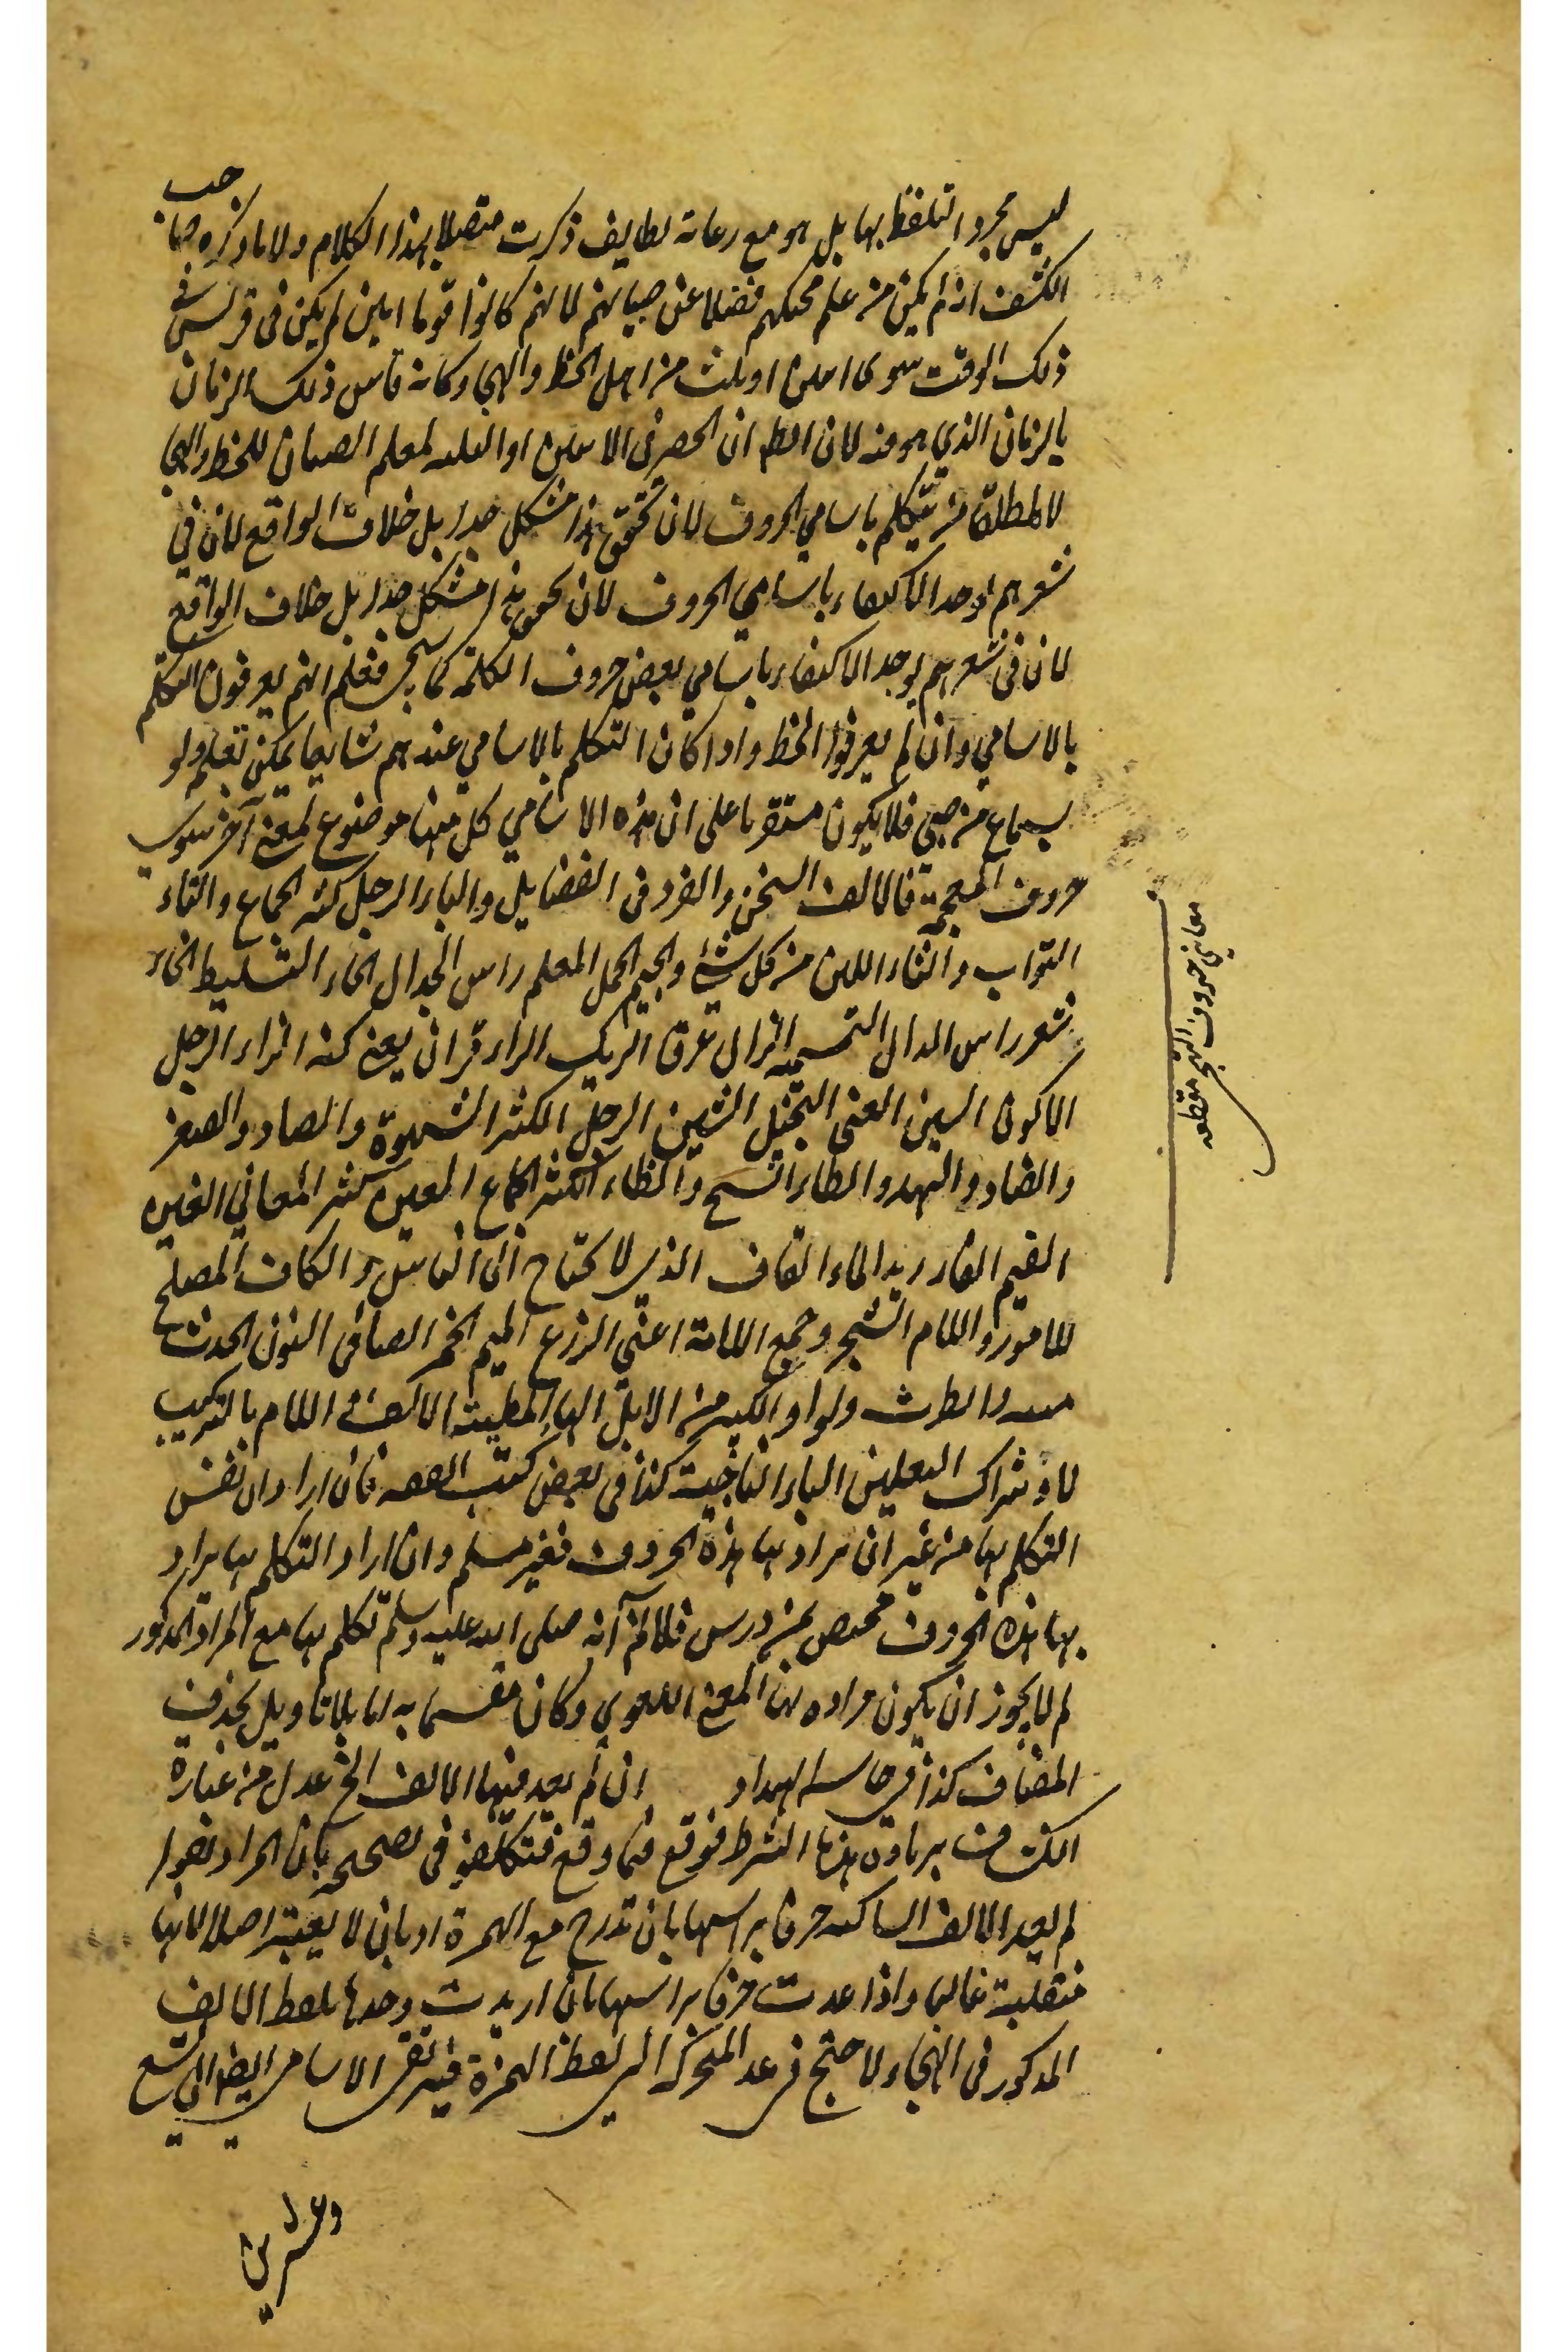 ليس مجرد التلفظ بها بل هو مع رعاية لطايف ذكرت متصلا بهذا الكلام ولا ما ذكره صاحب
الكشف انه لم يكن من علم محكيهم فضلا عن صبيانهم لانهم كانوا قوما اميين لم يكن في قريش في
ذلك الوقت سوى اثنين او ثلث من اهل الخط والهجا وكانه قاس ذلك الزمان
بالزمان الذي هو فيه لان الظ ان الحصر في الاثنين او الثلثه لمعلم الصبيان للخط والهجا
لا لمطلق من يتكلم باسامي الحروف لان تحقق هذا مشكل جدا بل خلاف الواقع لان في
شعرهم يوجد الاكتفاء باسامي الحروف لان تحقق هذا مشكل جدا بل خلاف الواقع
لان في شعرهم يوجد الاكتفاء باسامي بعض حروف الكلمة كما سيجي فعلم انهم يعرفون التكلم
بالاسامي وان لم يعرفوا الخط واذا كان التكلم بالاسامي عندهم شايعا يمكن تعلمه ولو
بسماع من صبي فلا يكون مستقربا على ان هذه الاسامي كل منها موضوع لمعنى آخر سوى
حروف المعجمة فالالف السخن والفرد في الفضايل والباء الرجل كثير الجماع والتاء
التواب والثاء اللين من كل شيء والجيم الجمل المعلم راس الجدال الحاء التسليط الخاء
شعر راس الدال التسميه الذال عرق الريك الراء قران يعني كنه الزاء الرجل
الاكول السين الغني البخيل الشين الرجل الكثير الشهوة والصاد والصفر
والضاد والنهد والطاء الشيخ والظاء الكثير الجماع العين كثير المعاني الغين
الغيم الفاء زبد الماء القاف الذي لا يحتاج الى الناس والكاف المصلح
للامور واللام الشجر وجمع اللامة اعني الزرع الميم الخمر الصافي النون الحدث
والطرث ولواو الكبير من الابل الهاء المطيته الالف اللام بالتركيب
لاو شراك النعلين الياء الناخية كذا في بعض كتب القصه فان اراد ان نفس
التكلم بها من غير ان يراد بها هذه الحروف فغير مسلم وان اراد التكلم بها يراد
بها هذه الحروف مختص بمن درس فلانم آنه صلى الله عليه وسلم تكلم بها مع المراد المذكور
لم لا يجوز ان يكون مراده بها المعنى اللغوي وكان مقسما به اما بلا تاويل بحذف
المضاف كذا في حاسه الهداد ان لم يعد فيها الالف الخ عدل من عبارة
الكشاف بزيادة هذا الشرط فوقع فيما وقع فتكلفو في تصحيحه بان المراد بقوله
لم يعد الالف الساكنه حرفا براسها بان تدرج مع الهمزة او بان لا يعتبر اصلا لانها
منقلبة غالبا واذا عدت حرفا براسها بان اريدت وحدها بلفظ الالف
المذكور في الهجاء لاحتج في عد المتحركة الى لفظ الهمزة فيرتقي الاسامي ايضا الى تسع
وعشرين
معاني حروف التهجي مقطعه